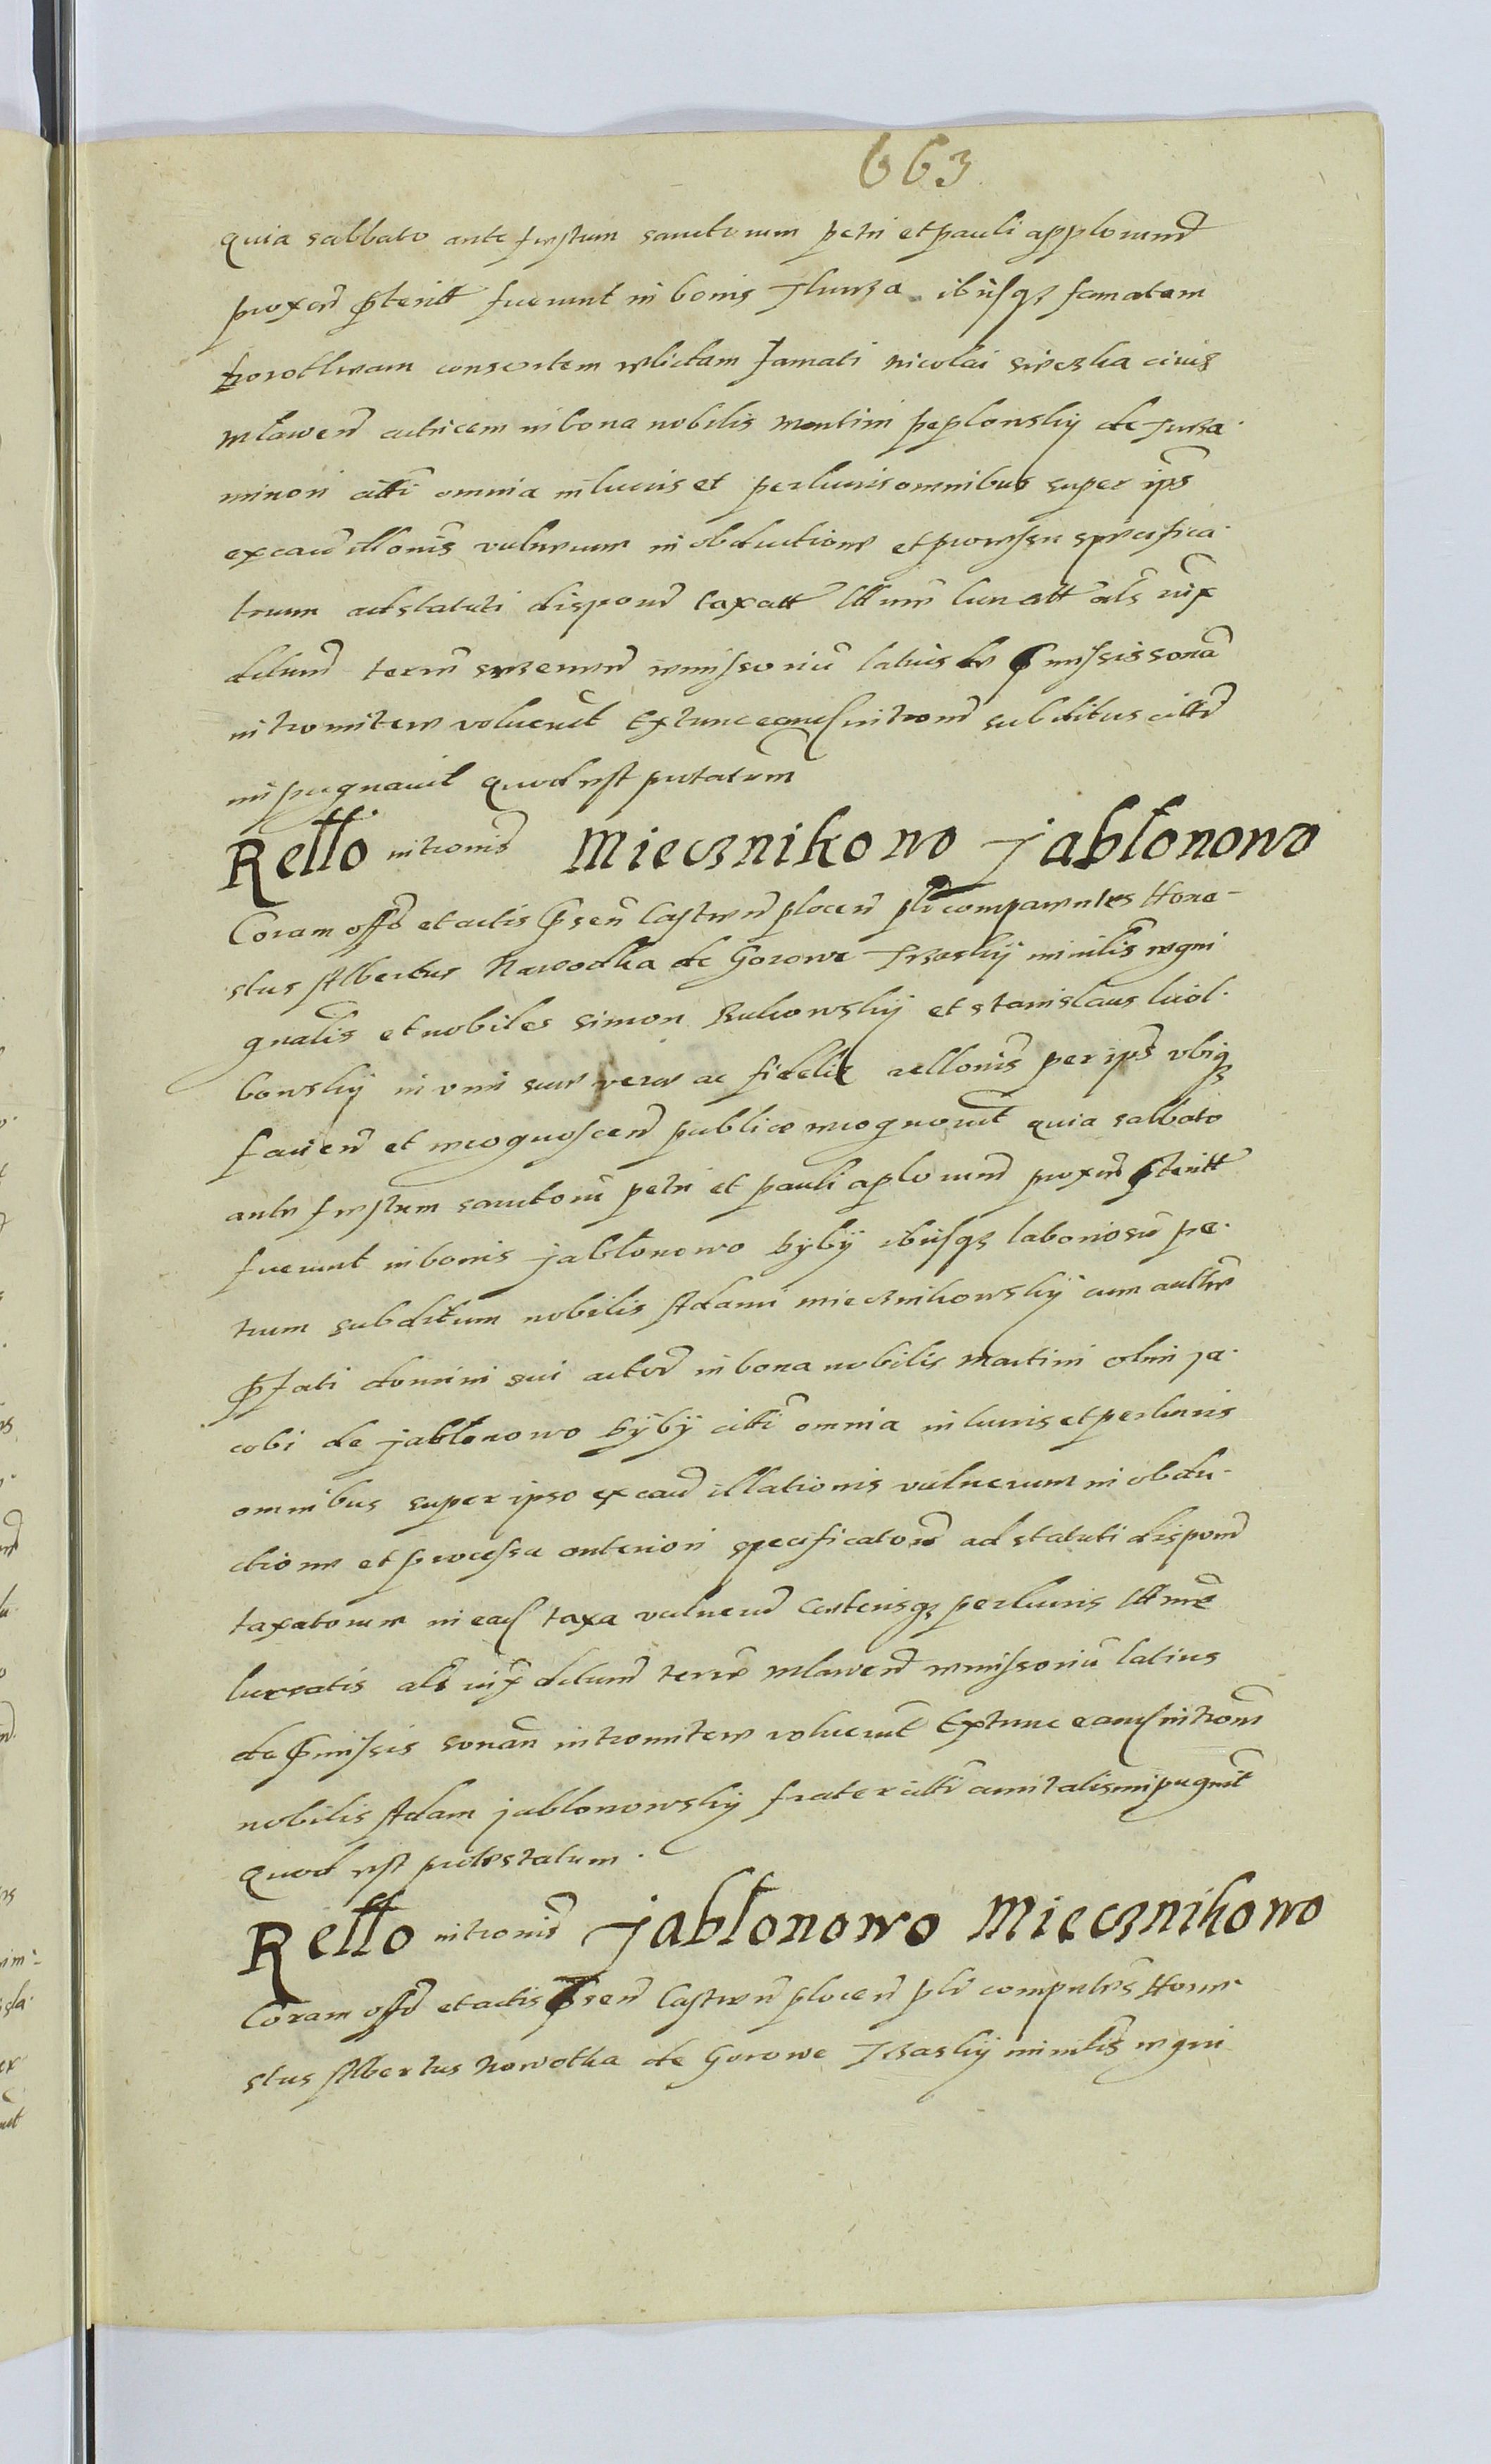 663
quia sabbato ante festum sanctorum petri et pauli applorumd
proxed pteritt fuerunt in bonis Jlurza ibusqz famatam
horothream consortem relictam famati nicolai siveczka civis
mławen actricem in bona nobilis Martini peplonskij de Jurza
minori citti omnia in lucris et perlucris omnibus super ips
ex cau illonis vulnerum in obductione et processu specifica
torum ad statuti dispond taxatt lttmre lucratt als vix
ditum terre remissoriu latius de pmissis sonan
intromitere voluerut Ex tunc eand introm subditus citti
inpugnavit quod est
Retto intronis Miecznikowo Jabłonowo
Coram offo et actis psen Castren plocen plr comparentes Hone-
stus Albertus Nawodka de Gorowe Trzaskij minilis regni
gnalis et nobiles simon Rukowskij et stanislaus luiol
bowskij in vim sue vere ac fidelis rellonis per ips vbiqz
facien et recognoscen publice recognorut quia sabbato
ante festum sanctoru petri et pauli aplorumd proxed pteritt
fuerunt in bonis jabłonowo kÿbÿ ibusqz laboriosu pe
trum subditum nobilis Adami miecznikowskij cum aucthre
pfati domini sui actore in bona nobilis Martini olim Ja
cobi de jabłonowo kÿbÿ citti omnia in lucris et perlucris
omnibus super ipso ex cau illationis vulnerum in obdu
ctione et processu anteriori specificatoru ad statuti disponed
taxatorum in ead taxa vulnerud ceterisqz perlucris lttmre
lucratis als vix ditumd terre mlawen remissoriu latius
de pmissis sonan intromitere voluerut Ex tunc eand introm
nobilis Adam jablonowskij frater citti amitalis inpugnit
quod est protestatum
Retto intronis Jabłonowo Miecznikowo
Coram offo et actis psen Castren plocen plr compntes Hone
stus Albertus Nowotka de Gorowe Trzaskij minilis regni